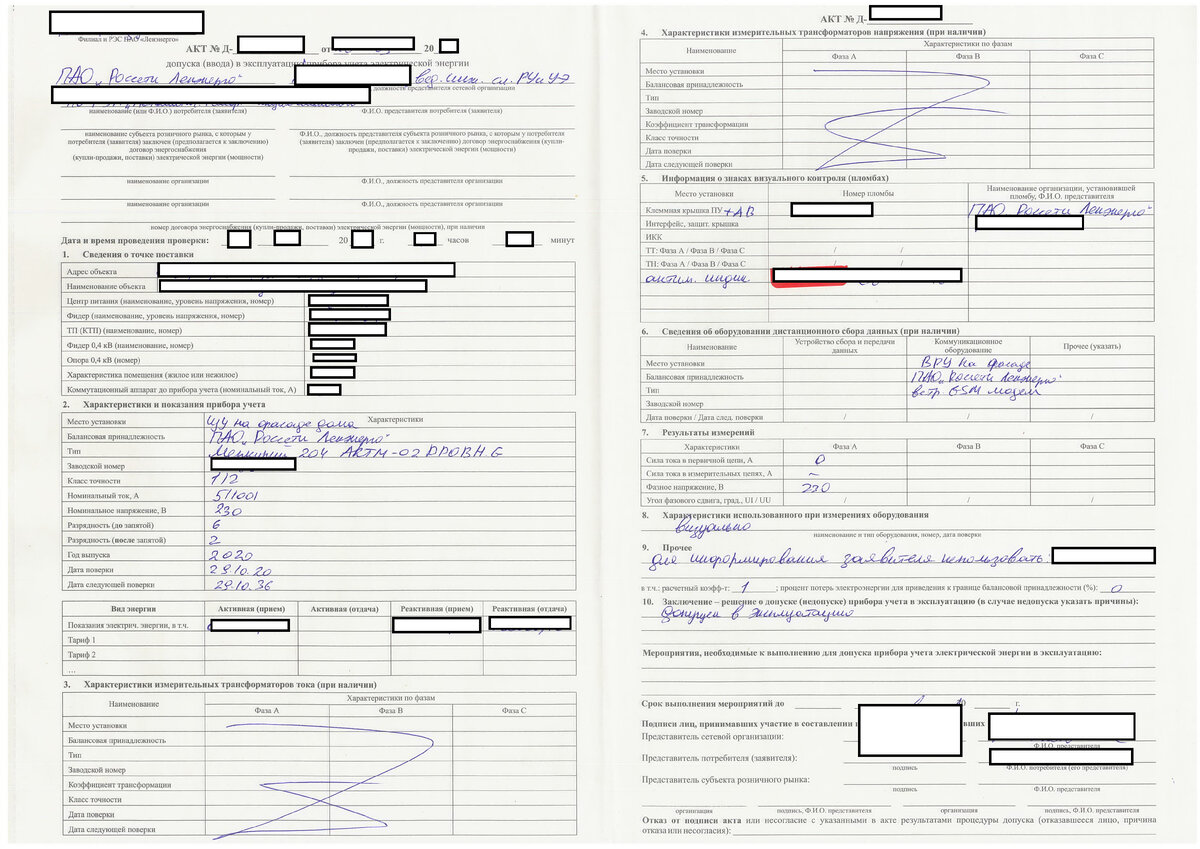 Филиал и РЭС ПАО «Ленэнерго»
АКТ № Д- от 20
допуска (ввода) в эксплуатацию прибора учета электрической энергии
ПАО „Россети Ленэнерго“ вед. инж. сл. РУиУЭ
должности представителя сетевой организации
наименование (или Ф.И.О.) потребителя (заявителя) Ф.И.О. представителя потребителя (заявителя)
наименование субъекта розничного рынка, с которым у
потребителя (заявителя) заключен (предполагается к заключению)
договор энергоснабжения
(купли-продажи, поставки) электрической энергии (мощности)
Ф.И.О., должность представителя субъекта розничного рынка, с которым у потребителя
(заявителя) заключен (предполагается к заключению) договор энергоснабжения (купли-
продажи, поставки) электрической энергии (мощности)
наименование организации Ф.И.О., должность представителя организации
наименование организации Ф.И.О., должность представителя организации
номер договора энергоснабжения (купли-продажи, поставки) электрической энергии (мощности), при наличии
Дата и время проведения проверки: 20 г. часов минут
1. Сведения о точке поставки
Адрес объекта
Наименование объекта
Центр питания (наименование, уровень напряжения, номер)
Фидер (наименование, уровень напряжения, номер)
ТП (КТП) (наименование, номер)
Фидер 0,4 кВ (наименование, номер)
Опора 0,4 кВ (номер)
Характеристика помещения (жилое или нежилое)
Коммутационный аппарат до прибора учета (номинальный ток, А)
2. Характеристики и показания прибора учета
Характеристики
Место установки ЩУ на фасаде дома
Балансовая принадлежность ПАО „Россети Ленэнерго“
Тип Меркурий 204 ARTM-02 DPOBH.G
Заводской номер
Класс точности 1/2
Номинальный ток, А 5(100)
Номинальное напряжение, В 230
Разрядность (до запятой) 6
Разрядность (после запятой) 2
Год выпуска 2020
Дата поверки 29.10.20
Дата следующей поверки 29.10.36
Вид энергии Активная (прием) Активная (отдача) Реактивная (прием) Реактивная (отдача)
Показания электрич. энергии, в т.ч.
Тариф 1
Тариф 2
...
3. Характеристики измерительных трансформаторов тока (при наличии)
Наименование Характеристики по фазам
Фаза А Фаза В Фаза С
Место установки
Балансовая принадлежность
Тип
Заводской номер
Коэффициент трансформации
Класс точности
Дата поверки
Дата следующей поверки
АКТ № Д-
4. Характеристики измерительных трансформаторов напряжения (при наличии)
Наименование Характеристики по фазам
Фаза А Фаза В Фаза С
Место установки
Балансовая принадлежность
Тип
Заводской номер
Коэффициент трансформации
Класс точности
Дата поверки
Дата следующей поверки
5. Информация о знаках визуального контроля (пломбах)
Место установки Номер пломбы Наименование организации, установившей
пломбу, Ф.И.О. представителя
Клеммная крышка ПУ +АВ ПАО „Россети Ленэнерго“
Интерфейс, защит. крышка
ИКК
ТТ: Фаза А / Фаза В / Фаза С / /
ТН: Фаза А / Фаза В / Фаза С / /
антим. индик.
6. Сведения об оборудовании дистанционного сбора данных (при наличии)
Наименование Устройство сбора и передачи
данных Коммуникационное
оборудование Прочее (указать)
Место установки ВРУ на фасаде
Балансовая принадлежность ПАО „Россети Ленэнерго“
Тип встр GSM модем
Заводской номер
Дата поверки / Дата след. поверки / / /
7. Результаты измерений
Характеристики Фаза А Фаза В Фаза С
Сила тока в первичной цепи, А 0
Сила тока в измерительных цепях, А –
Фазное напряжение, В 230
Угол фазового сдвига, град., UI / UU / / /
8. Характеристики использованного при измерениях оборудования
визуально
наименование и тип оборудования, номер, дата поверки
9. Прочее
для информирования заявителя использовать:
в т.ч.: расчетный коэфф-т: 1 ; процент потерь электроэнергии для приведения к границе балансовой принадлежности (%): 0
10. Заключение – решение о допуске (недопуске) прибора учета в эксплуатацию (в случае недопуска указать причины):
допуск в эксплуатацию
Мероприятия, необходимые к выполнению для допуска прибора учета электрической энергии в эксплуатацию:
Срок выполнения мероприятий до г.
Подписи лиц, принимавших участие в составлении
Представитель сетевой организации:
Ф.И.О. представителя
Представитель потребителя (заявителя):
подпись Ф.И.О. потребителя (его представителя)
Представитель субъекта розничного рынка:
подпись Ф.И.О. представителя
организация подпись, Ф.И.О. представителя организация подпись, Ф.И.О. представителя
Отказ от подписи акта или несогласие с указанными в акте результатами процедуры допуска (отказавшееся лицо, причина
отказа или несогласия):